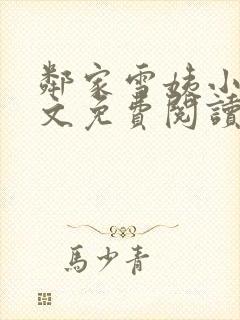 鄰家雪姨小
文免費閱讀
馬少青